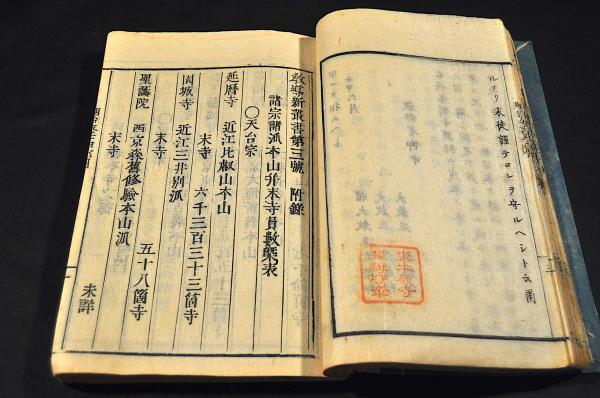 ルナリ末徒謹テコレヲ守ルヘシト云爾
教導新叢書第三號 附錄
諸宗諸派本山并末寺員數槩表
〇天台宗
延曆寺 近江比叡山本山
末寺 六千三百三十三箇寺
園城寺 近江三井別派
末寺 五十八箇寺
聖護院 西京森舊修驗本山派
末寺 未詳